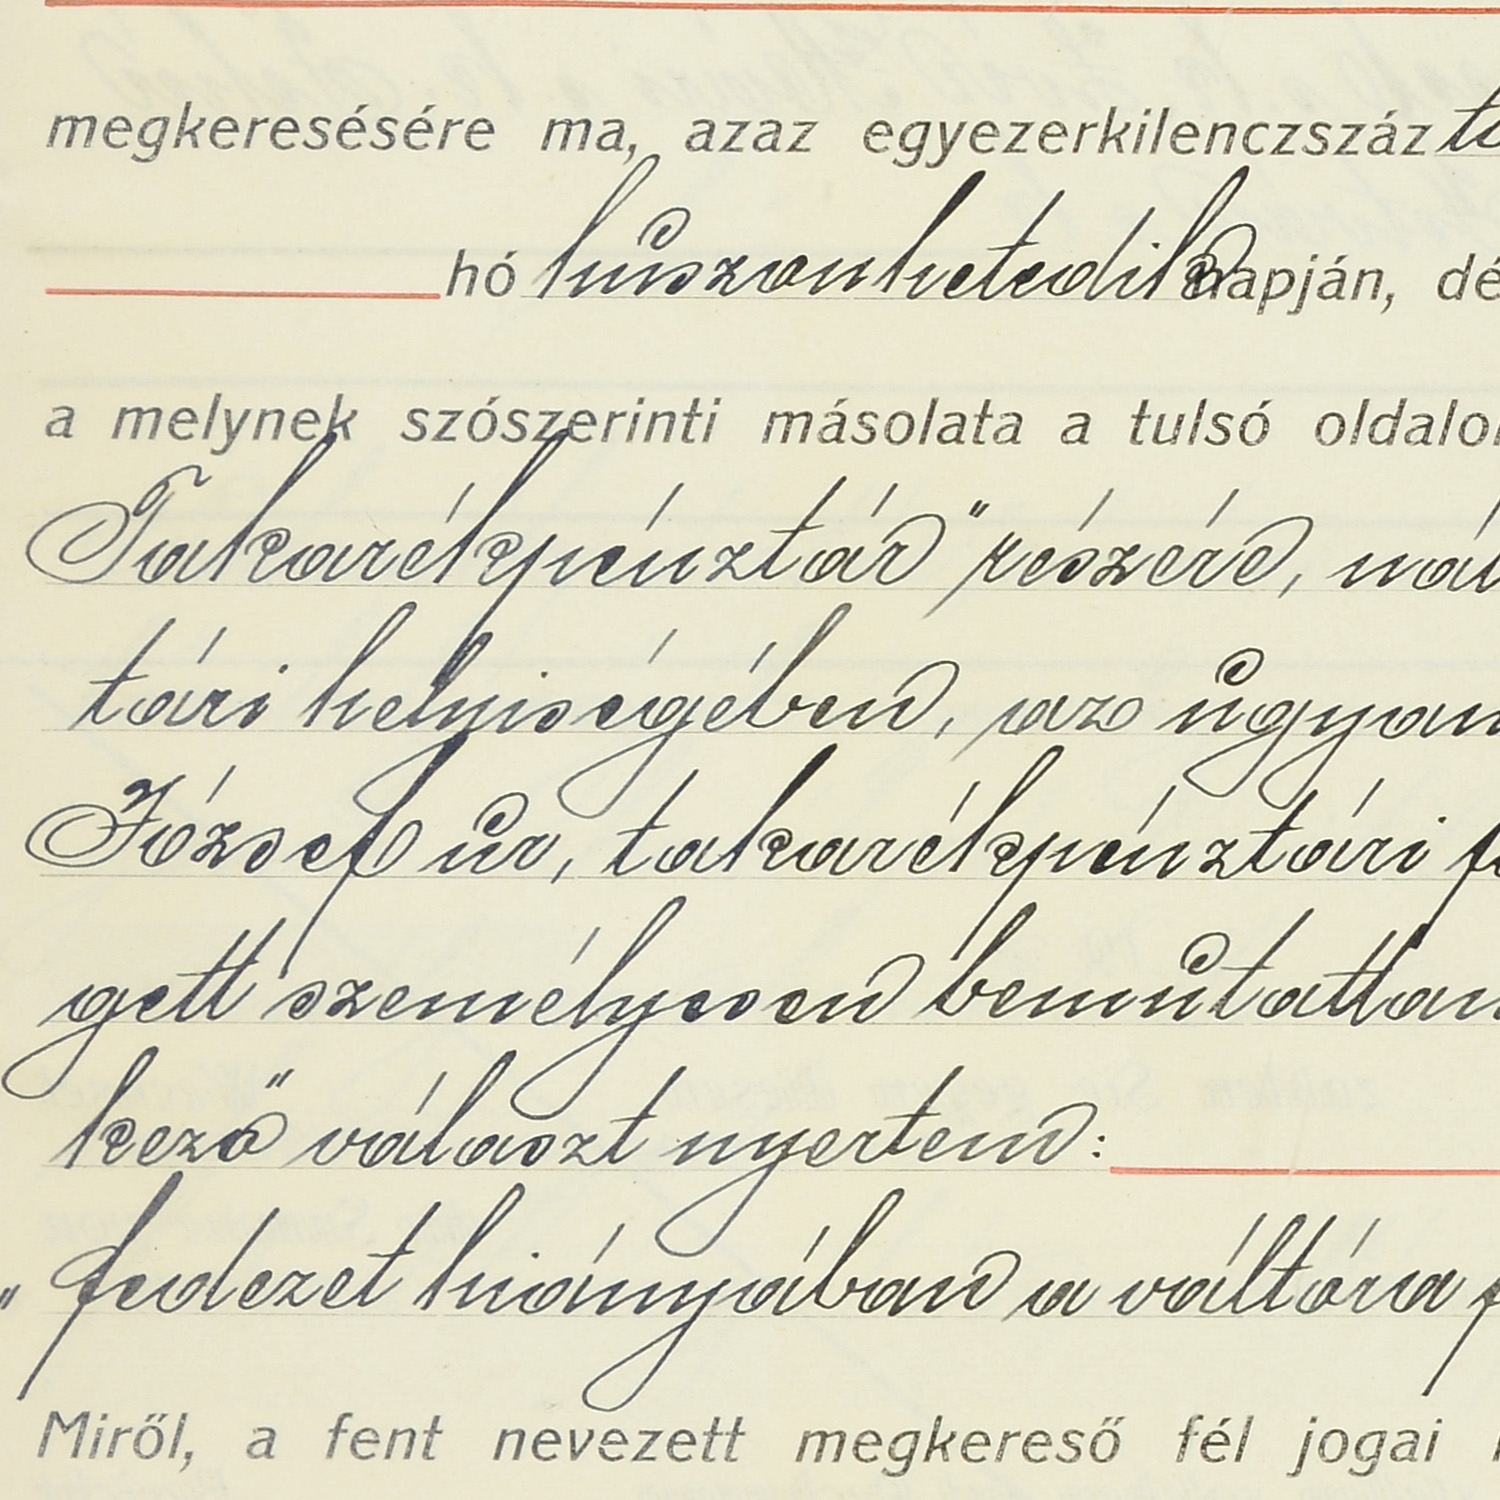 megkeresésére ma, azaz egyezerkilenczszáz
hó huszonhetedik napján, dé
a melynek szószerinti másolata a tulsó oldalon
Takarékpénztár" részére, nál
tári helyiségében, az ugyan
József ur, takarékpénztári fő
gett személyesen bemutattam
kező választ nyertem:
„fedezet hiányában a váltóra f
Miről, a fent nevezett megkereső fél jogai